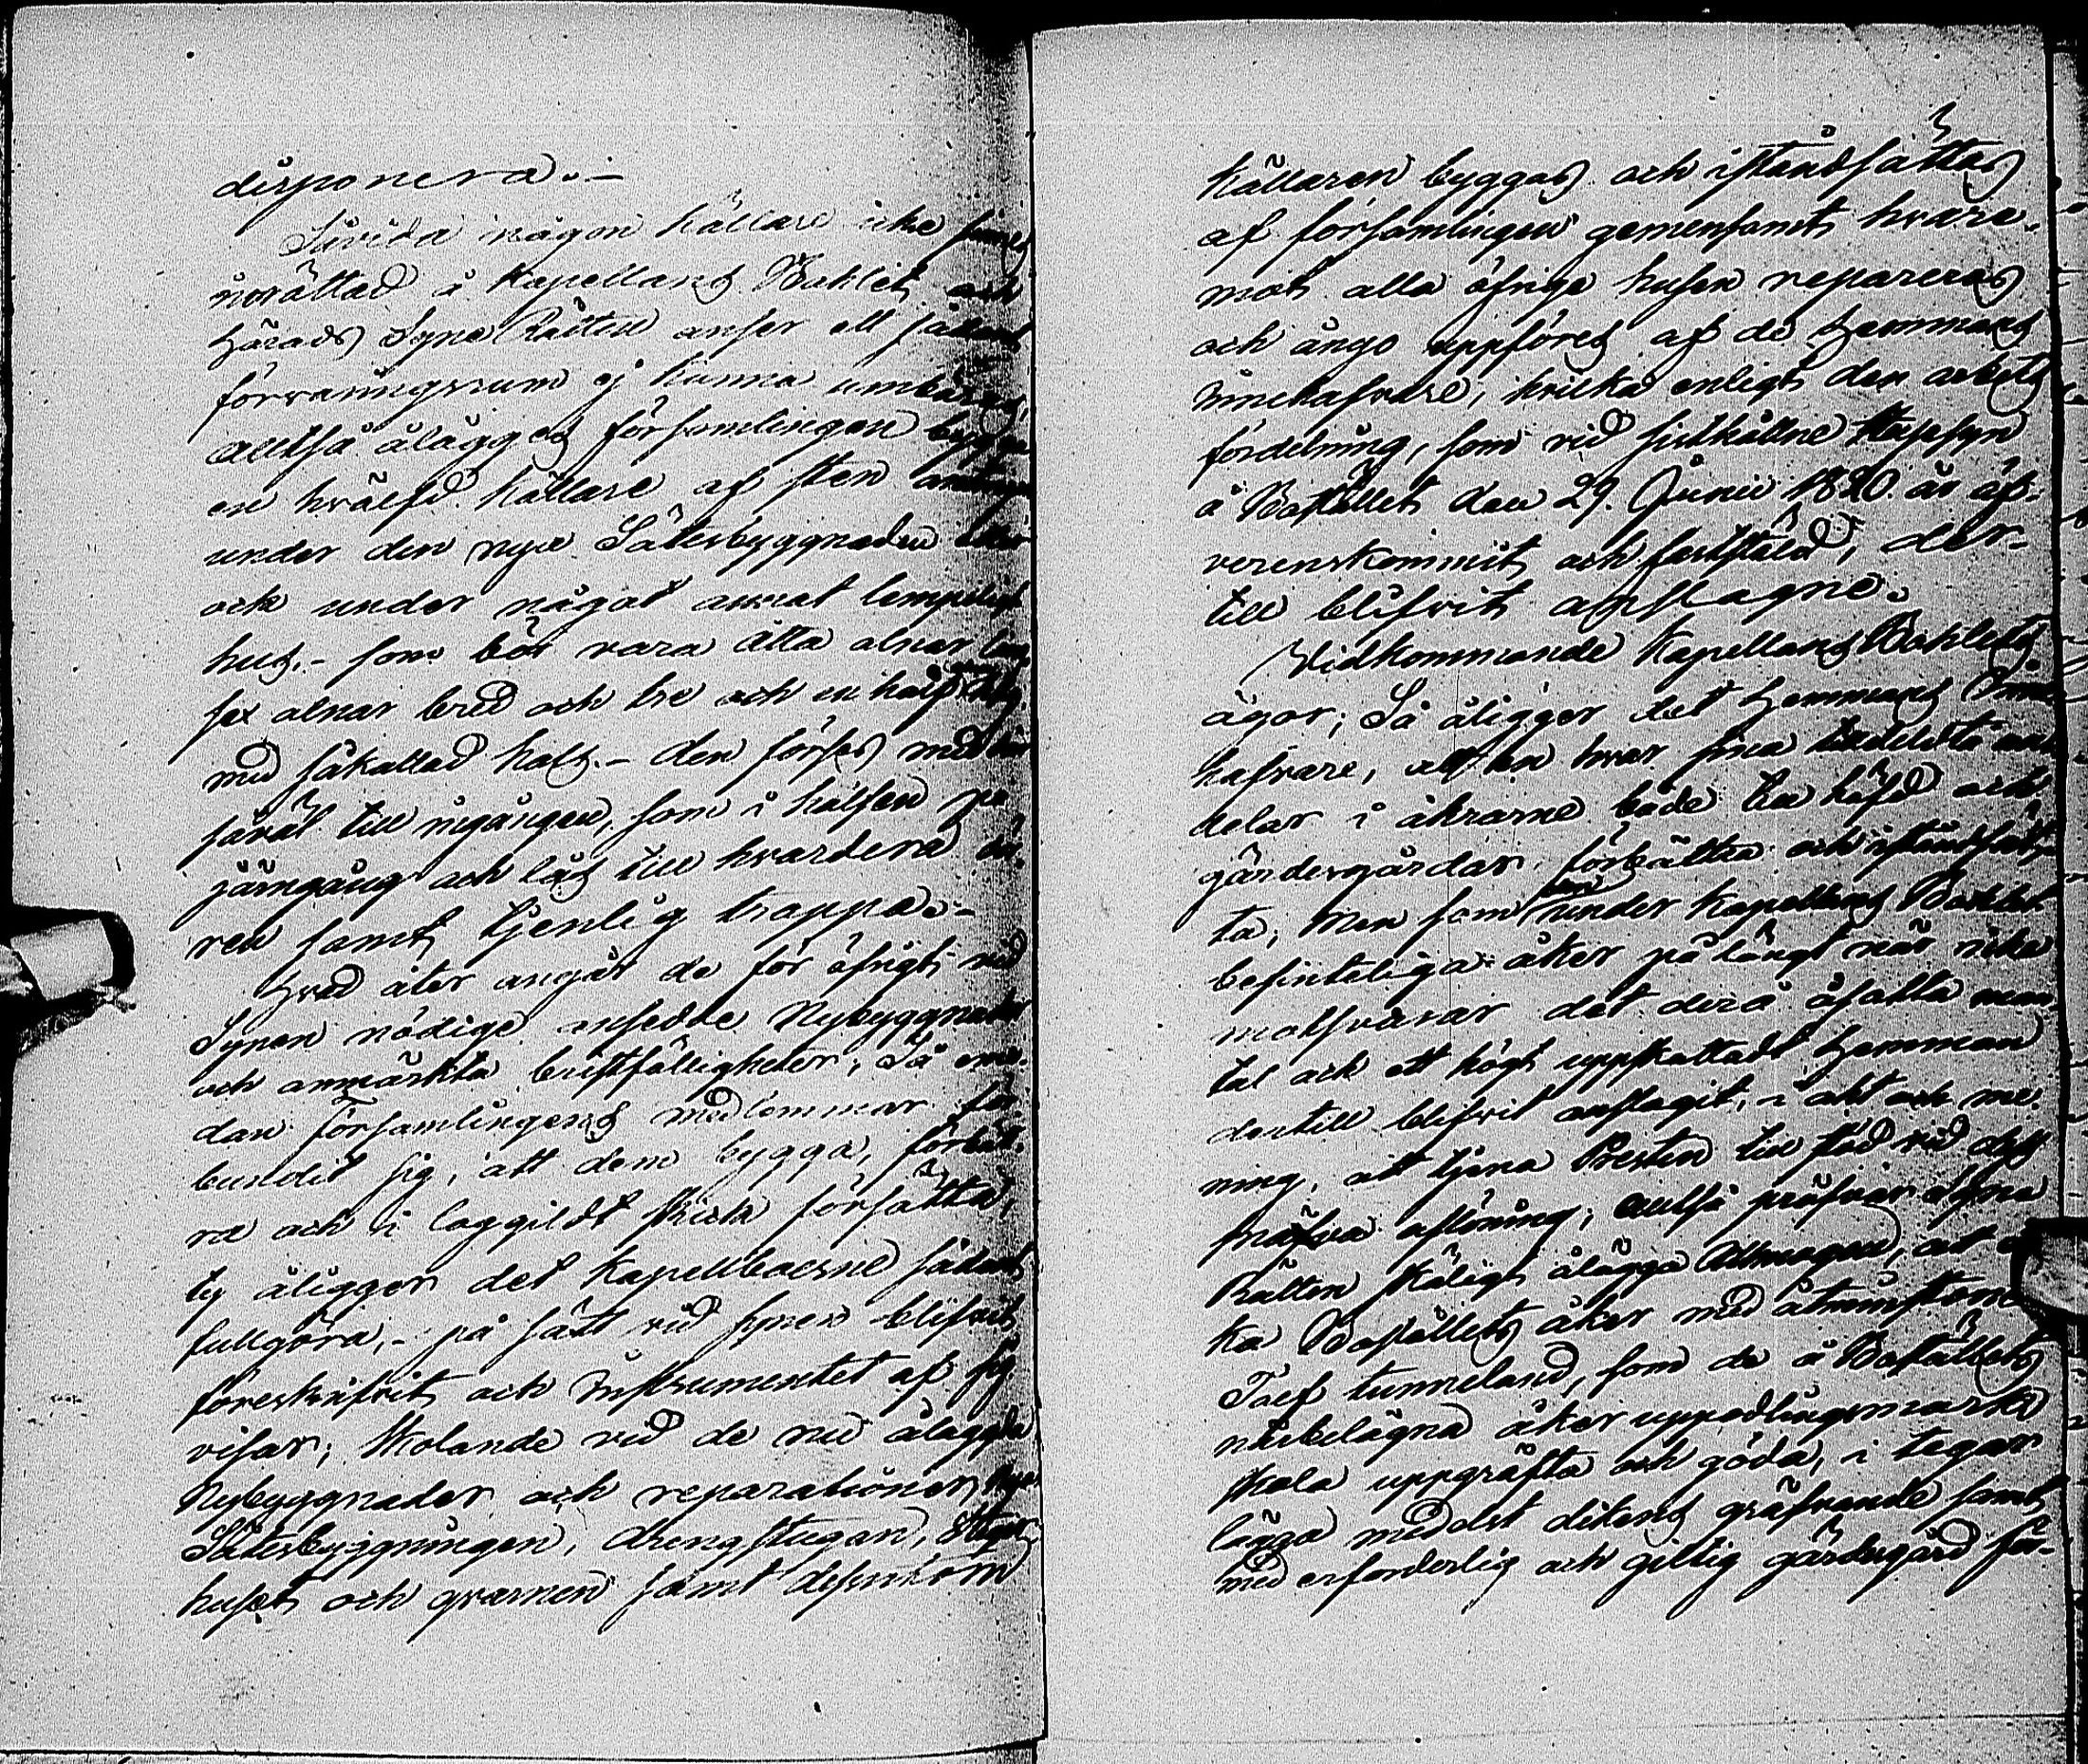 disponera.-
Såvida någon källare icke finnes
inrättad å Kapellans Bohlet och
Härads Syne Rätten anser ett sådant
förvaringsrum ej kunna umbäras,
alltså ålägges församlingen bygga
en hvälfd källare af sten antingen
under den nya Sätesbyggnaden eller
ock under något annat lämpeligt
hus,- som bör vara åtta alnar lång
sex alnar bred och tre och en half hög
med såkallad hals.- den förses med dörr
såväl till ingången, som i halsen på
järngång och lås till hvardera dör-
ren samt tjenlig trappa.-
Hvad åter angår de för öfrigt vid
Synen nödige ansedde Nybyggnader
och anmärkta bristfälligheter; Så eme-
dan församlingens medlemmar för-
bundit sig, att dem bygga, förbät-
ra och i laggildt skick försätta,
ty åligger det Kapellboerne sådant
fullgöra,- på sätt vid synen blifvit
föreskrifvit och Instrumentet af sig
visar; skolande vid de nu ålagda
Nybyggnader och reparationer,
Sätesbyggningen, drengstugan,
huset och qvarnen samt dessutom
källaren byggas och iståndsättas
af församlingen gemensamt hvare-
mot alla öfrige husen repareras
och ånyo uppföres af de Hemmans
Innehafvare, hvilka enligt den arbets
fördelning, som vid sidthållne Husesyn
å Bostället den 29. Junii 1820. är öf-
verenskommit och fastställd, der-
till blifvit anslagne.
Vidkommande Kapellans Bohlets
ägor; Så åligger det Hemmans Inne-
hafvare, att en hvar sina tilldelta an-
delar i åkrarne både till häfd och
gärdesgårdar, förbättra och iståndsät-
ta; Men som den under Kapellans Bohlet
befinteliga åker på långt när icke
motsvarar det derå åsatta man-
tal och ett högt uppskattadt Hemman
dertill blifvit anslagit, i akt och me-
ning, att tjena Presten till stöd vid dess
aflöning; alltså pröfvar Syne
Rätten skäligt ålägga Allmogen, att
ka Boställets åker med åtminstone
Tolf tunneland, som de å Boställets
närbelägna åker uppodlingsmarker
skola uppgräfta och göda, i tegar
lägga medelst dikens gräfvande samt
med erforderlig och giltig gärdesgård för-